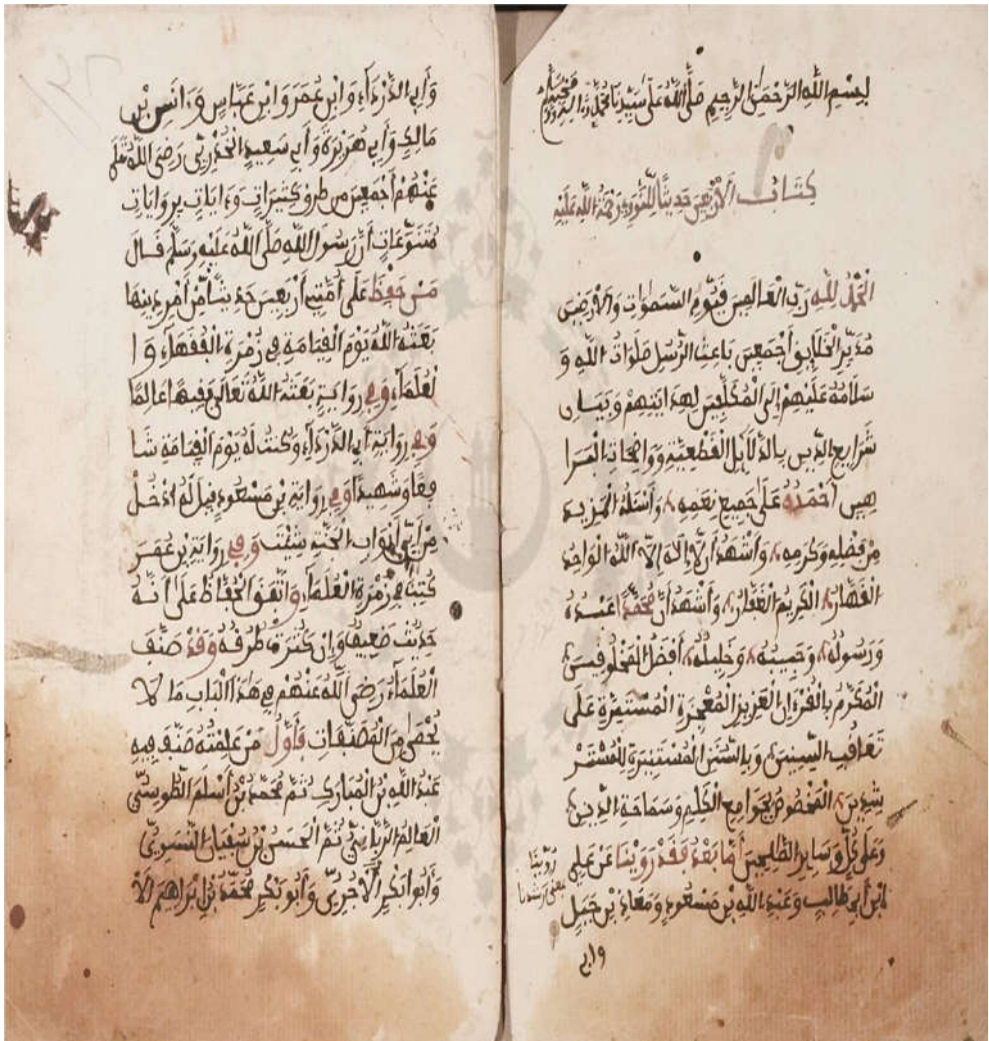 بِسْمِ اللَّهِ الرَّحْمَٰنِ الرَّحِيمِ صَلَّى اللَّهُ عَلَى سَيِّدِنَا مُحَمَّدٍ وَءَالِهِ وَصَحْبِهِ
كِتَابُ الْأَرْبَعِينَ حَدِيثًا لِلنَّوَوِي رَحْمَةُ اللَّهِ عَلَيْهِ
الْحَمْدُ لِلَّهِ رَبِّ الْعَالَمِينَ قَيُّومِ السَّمَٰوَاتِ وَالْأَرَضِينَ
مُدَبِّرِ الْخَلَائِقِ أَجْمَعِينَ بَاعِثِ الرُّسُلِ صَلَوَاتُ اللَّهِ وَ
سَلَامُهُ عَلَيْهِمْ إِلَى الْمُكَلَّفِينَ لِهِدَايَتِهِمْ وَبَيَانِ
شَرَائِعِ الدِّينِ بِالدَّلَائِلِ الْقَطْعِيَّةِ وَوَاضِحَاتِ الْبَرَا
هِينِ أَحْمَدُهُ عَلَى جَمِيعِ نِعَمِهِ وَأَسْئَلُهُ الْمَزِيدَ
مِنْ فَضْلِهِ وَكَرَمِهِ وَأَشْهَدُ أَنْ لَا إِلَٰهَ إِلَّا اللَّهُ الْوَاحِدُ
الْقَهَّارُ الْكَرِيمُ الْغَفَّارُ وَأَشْهَدُ أَنَّ مُحَمَّدًا عَبْدُهُ
وَرَسُولُهُ وَحَبِيبُهُ وَخَلِيلُهُ أَفْضَلُ الْمَخْلُوقِينَ
الْمُكَرَّمُ بِالْقُرْءَانِ الْعَزِيزِ الْمُعْجِزَةِ الْمُسْتَمِرَّةِ عَلَى
تَعَاقُبِ السِّنِينَ وَبِالسُّنَنِ الْمُسْتَنِيرَةِ لِلْمُسْتَرْ
شِدِينَ الْمَخْصُوصُ بِجَوَامِعِ الْكَلِمِ وَسَمَاحَةِ الدِّينِ
وَعَلَى كُلٍّ وَسَائِرِ الصَّالِحِينَ أَمَّا بَعْدُ فَقَدْ رَوَيْنَا عَنْ عَلِي
ابْنِ أَبِي طَالِبٍ وَعَبْدِ اللَّهِ بْنِ مَسْعُودٍ وَمُعَاذِ بْنِ جَبَلٍ
رُوِّينَا
وابى
وَأَبِي الدَّرْدَاءِ وَابْنِ عُمَرَ وَابْنِ عَبَّاسٍ وَءَانَسِ بْنِ
مَالِكٍ وَأَبِي هُرَيْرَةَ وَأَبِي سَعِيدٍ الْخُدْرِيِّ رَضِيَ اللَّهُ تَعَلَى
عَنْهُمْ أَجْمَعِينَ مِنْ طُرُقٍ كَثِيرَاتٍ وَءَايَاتٍ بِرِوَايَاتٍ
مُتَنَوِّعَاتٍ أَنَّ رَسُولَ اللَّهِ صَلَّى اللَّهُ عَلَيْهِ وَسَلَّمَ قَالَ
مَنْ حَفِظَ عَلَى أُمَّتِي أَرْبَعِينَ حَدِيثًا مِّنْ أَمْرِ دِينِهَا
بَعَثَهُ اللَّهُ يَوْمَ الْقِيَامَةِ فِي زُمْرَةِ الْفُقَهَاءِ وَا
لْعُلَمَاءِ وَفِي رِوَايَةٍ بَعَثَهُ اللَّهُ تَعَالَى فَقِيهًا عَالِمًا
وَفِي رِوَايَةِ أَبِي الدَّرْدَاءِ وَكُنْتُ لَهُ يَوْمَ الْقِيَامَةِ شَا
فِعًا وَشَهِيدًا وَفِي رِوَايَةِ بْنِ مَسْعُودٍ قِيلَ لَهُ ادْخُلْ
مِنْ أَيِّ أَبْوَابِ الْجَنَّةِ شِئْتَ وَفِي رِوَايَةِ بْنِ عُمَرَ
كُتِبَ فِي زُمْرَةِ الْعُلَمَاءِ وَاتَّفَقَ الْحُفَّاظُ عَلَى أَنَّهُ
حَدِيثٌ ضَعِيفٌ وَإِنْ كَثُرَتْ طُرُقُهُ وَقَدْ صَنَّفَ
الْعُلَمَاءُ رَضِيَ اللَّهُ عَنْهُمْ فِي هَذَا الْبَابِ مَا لَا
يُحْصَى مِنَ الْمُصَنَّفَاتِ فَأَوَّلُ مَنْ عَلِمْتُهُ صَنَّفَ فِيهِ
عَبْدُ اللَّهِ بْنُ الْمُبَارَكِ ثُمَّ مُحَمَّدُ بْنُ أَسْلَمَ الطُّوسِيُّ
الْعَالِمُ الرَّبَّانِيُّ ثُمَّ الْحَسَنُ بْنُ سُفْيَانَ النَّسَوِيُّ
وَأَبُو بَكْرٍ الْآجُرِيُّ وَأَبُو بَكْرٍ مُحَمَّدُ بْنُ إِبْرَاهِيمَ الْأَ